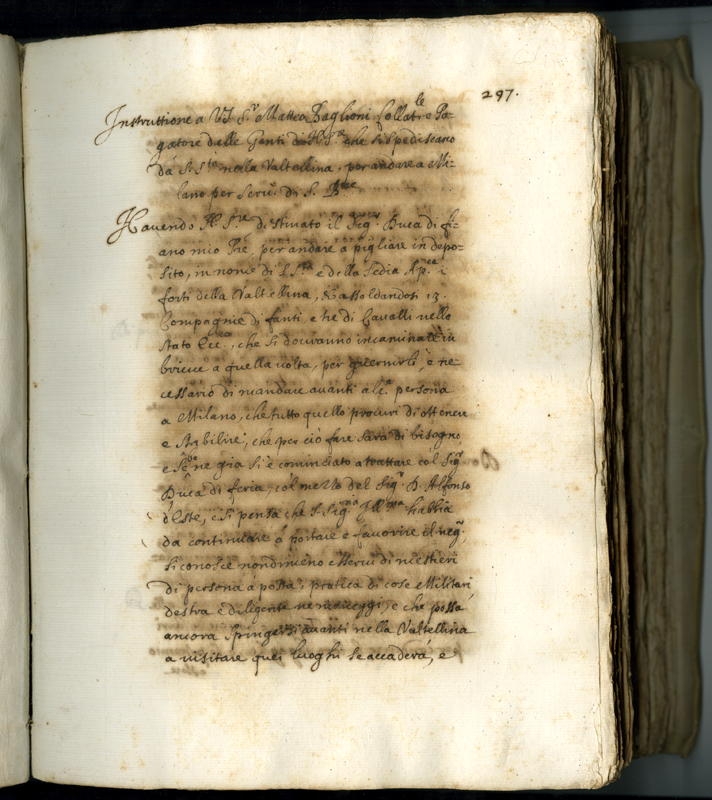 297.
Instruttione a VS. Sr. Matteo Baglioni Collatle e Pa=
gatore delle Genti di N. Sre che si spediscano
da S. Sta nella Valtellina, per andare a Mi=
lano per serv.o di S. Bne
Havendo N. Sre destinato il Sigr. Duca di fi=
ano mio Pre, per andare a pigliare in depo=
sito, in nome di S. Sta e della Sedia Apca i
forti della Valtellina, et assoldandosi 13.
Compagnie di fanti e tre di Cavalli nello
Stato Ecc.co, che si dovranno incaminare in
breve a quella volta, per guernirli, è ne
cessario di mandare avanti alc.a persona
a Milano, che tutto quello procuri di ottenere
e stabilire, che per ciò fare sarà di bisogno,
e se bene già si è cominciato a trattare col Sigr.
Duca di feria, col mezzo del Sigr. D. Alfonso
d'Este, e si pensa che S. Sigria Illma habbia
da continuare à portare e favorire il neg.o,
si conosce nondimeno esservi di mestieri
di persona à posta, pratica di cose Militari
destra e diligente ne maneggi, e che possa
ancora spingersi avanti nella Valtellina
a visitare quei luoghi se accaderà, e